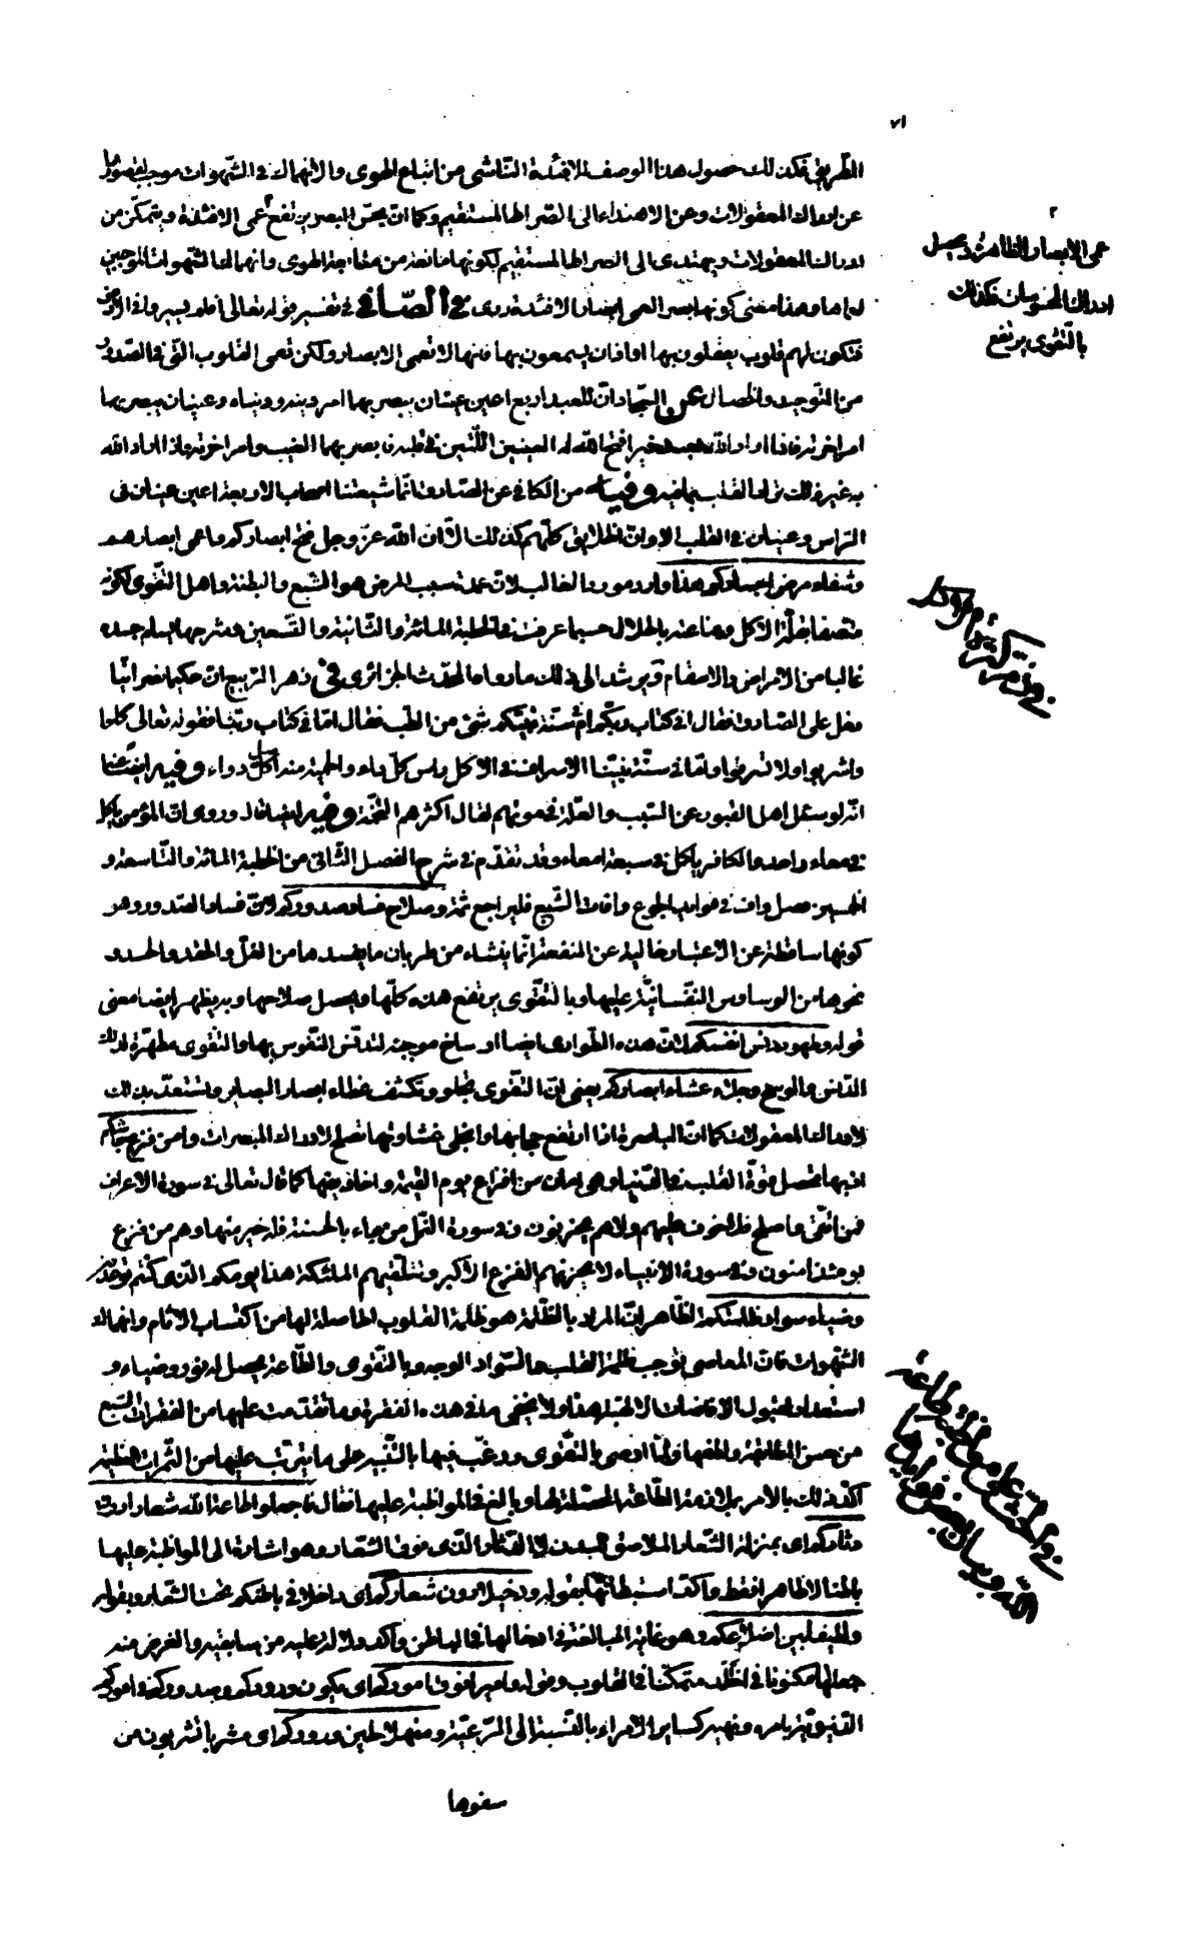 ٧١
الطّريق فكذلك حصول هذا الوصف للأفئدة النّاشى من اتباع الهوى والانهماك في الشّهوات موجب لقصورها
عن ادراك المعقولات وعن الاهتداء الى الصّراط المستقيم وكما انّ بحسّ البصر يرتفع عمى الافئدة ويتمكّن من
ادراك المعقولات ويهتدى الى الصراط المستقيم لكونها مانعة من متابعة الهوى وانهماك الشهوات الموجبين
لعماها وهذا معنى كونها بصر العمى ايضا والافئدة روى في الصّافي في تفسير قوله تعالى أفلم يسيروا في الارض
فتكون لهم قلوب يعقلون بها او اذان يسمعون بها فانها لا تعمى الابصار ولكن تعمى القلوب الّتى في الصّدور
من التوحيد والخصال عن السّجاد انّ للعبد اربع اعين عينان يبصر بهما امر دينه ودنياه وعينان يبصر بهما
امر اخرته فاذا اراد الله بعبد خيرا فتح الله له العينين اللّتين في قلبه فابصر بهما الغيب وامر اخرته واذا اراد الله
به غير ذلك ترك القلب بما فيه وفيه من الكافي عن الصّادق انّما شيعتنا اصحاب الاربعة اعين عينان في
الرّاس وعينان في القلب الا وانّ الخلايق كلّهم كذلك الّا ان الله عزّ وجل فتح ابصاركم واعمى ابصارهم
وشفاء مرض اجسادكم هذا وارد مورد الغالب لانّ عمدة سبب المرض هو الشّبع والبطنة واهل التّقوى لكونه
متصفا بقلّة الاكل وقناعته بالحلال حسبما عرفت في الخطبة المائة والثّانية والتّسعين وشرحها يسلم جسده
غالبا من الامراض والاسقام ويرشد الى ذلك ما رواه المحدّث الجزائرى في زهر الرّبيع انّ حكيما نصرانيّا
دخل على الصّادق فقال افي كتاب ربّكم ام سنّة نبيّكم شئ من الطّب فقال امّا في كتاب ربّنا فقوله تعالى كلوا
واشربوا ولا تسرفوا وامّا في سنّة نبيّنا الاسراف في الاكل رأس كلّ داء والحمية منه اصل كلّ دواء وفيه ايضا عنه
انّه لو سئل اهل القبور عن السّبب والعلّة في موتهم لقال اكثرهم التّخمة وفيه ايضا قال وروى انّ المؤمن يأكل
في معاء واحد والكافر يأكل في سبعة امعاء وقد تقدّم في شرح الفصل الثّاني من الخطبة المائة والتّاسعة و
الخمسين فصل واف في فوايد الجوع وافات الشّبع فليراجع ثمّة وصلاح فساد صدوركم لانّ فساد الصّدور وهو
كونها ساقطة عن الاعتبار خالية عن المنفعة انّما ينشاء من طريان ما يفسدها من الغلّ والحقد والحسد و
نحوها من الوساوس النّفسانيّة عليها وبالتّقوى يرتفع هذه كلّها ويحصل صلاحها وبه يظهر ايضا معنى
قوله وطهور دنس انفسكم لانّ هذه الطّوارى ايضا اوساخ موجبة لتدنّس النّفوس بها والتّقوى مطهّرة لذلك
الدّنس والوسخ وجلاء عشاء ابصاركم يعنى انّ التّقوى تجلو وتكشف غطاء ابصار البصاير وتستعدّ بذلك
لادراك المعقولات كما انّ الباصرة اذا ارتفع حجابها وانجلى غشاوتها تصلح لادراك المبصرات وامن فزع جاشكم
اذ بها تحصل قوّة القلب في الدّنيا وهى امان من افزاع يوم القيمة واخاويفها كما قال تعالى في سورة الاعراف
فمن اتّقى واصلح فلا خوف عليهم ولا هم يحزنون وفي سورة النّمل من جاء بالحسنة فله خير منها وهم من فزع
يومئذ امنون وفي سورة الانبياء لا يحزنهم الفزع الاكبر وتتلقّيهم الملئكة هذا يومكم الّذى كنتم توعدون
وضياء سواد ظلمتكم الظّاهر انّ المراد بالظّلمة هو ظلمة القلوب الحاصلة لها من اكتساب الاثام وانهماك
الشّهوات فانّ المعاصى يوجب ظلمة القلب والسّواد الوجه وبالتّقوى والطّاعة يحصل له نور وضياء و
استعداد لقبول الافاضات الالهيّة هذا ولا يخفى ما في هذه الفقرة وما تقدّمت عليها من الفقرات السّبع
من حسن المطابقة والمقابلة ولمّا اوصى بالتّقوى ورغّب فيها بالتّنبيه على ما يترتّب عليها من الثّمرات العظيمة
اكّد ذلك بالامر بملازمة الطّاعة المحصّلة لها وبالغ في المواظبة عليها فقال فاجعلوا طاعة الله شعارا دون
دثاركم اى بمنزلة الشّعار الملاصق للبدن لا الدّثار الّذى فوق الشّعار وهو اشارة الى المواظبة عليها
بالباطن لا الظاهر فقط واكّد استبطانها بقوله ودخيلا دون شعاركم اى داخلا في باطنكم تحت الشّعار وبقوله
ولطيفا بين اضلاعكم وهو غاية المبالغة في ادخالها في الباطن وآكد دلالة عليه من سابقيه والغرض منه
جعلها مكنونا في الخلد متمكّنا في القلوب وقوله واميرا فوق اموركم اى يكون ورودكم وصدوركم في اموركم
الدّنيويّة بامره ونهيه كساير الامراء بالنّسبة الى الرّعيّة ومنهلا لحين ورودكم اى مشربا تشربون من
سفوها
عمى الابصار الظاهرة ويحصل
ادراك المحسوسات فكذلك
بالتّقوى يرتفع